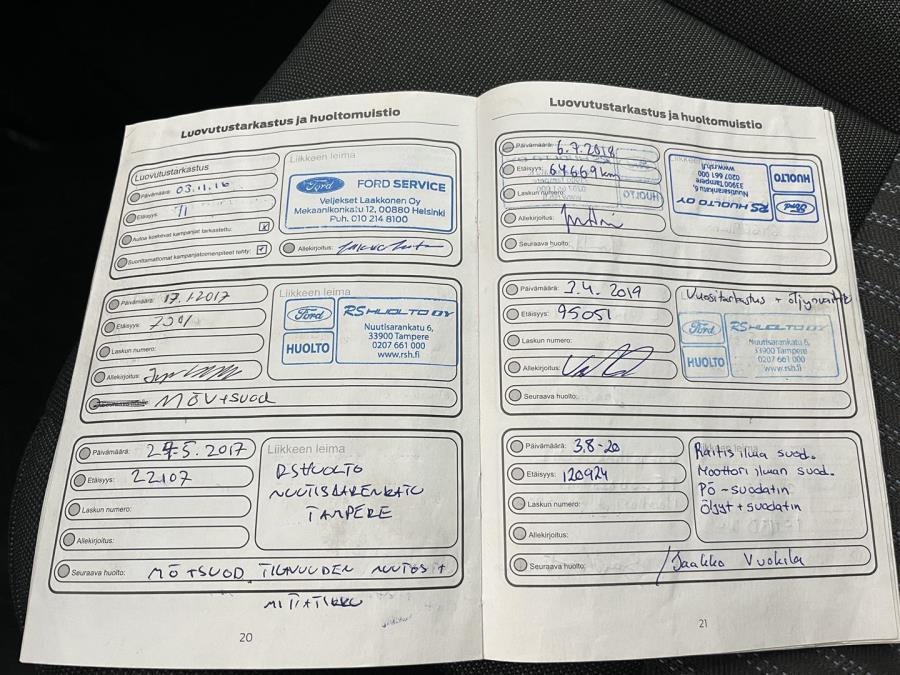 Luovutustarkastus ja huoltomuistio
Luovutustarkastus
Päivämäärä: 03.11.16
Etäisyys: 11
Autoa koskevat kampanjat tarkastettu:
Suorittamattomat kampanjatoimenpiteet tehty:
Liikkeen leima
Ford FORD SERVICE
Veljekset Laakkonen Oy
Mekaanikonkatu 12, 00880 Helsinki
Puh. 010 214 8100
Allekirjoitus:
Päivämäärä: 17.1.2017
Etäisyys:
Laskun numero:
Allekirjoitus:
MÖV+suod
Liikkeen leima
Ford
HUOLTO
RS HUOLTO OY
Nuutisarankatu 6,
33900 Tampere
0207 661 000
www.rsh.fi
Päivämäärä: 24.5.2017
Etäisyys: 22107
Laskun numero:
Allekirjoitus:
Liikkeen leima
RSHUOLTO
NUUTISARENKATU
TAMPERE
Seuraava huolto: MÖ+SUOD. TILAVUUDEN MUUTOS +
MITTATIKKU
20
Luovutustarkastus ja huoltomuistio
Päivämäärä: 6.7.2018
Etäisyys: 64669 km
Laskun numero:
Allekirjoitus:
Seuraava huolto:
Ford
HUOLTO
RS HUOLTO OY
Nuutisarankatu 6,
33900 Tampere
0207 661 000
www.rsh.fi
Päivämäärä: 3.4.2019
Etäisyys: 95051
Laskun numero:
Allekirjoitus:
Seuraava huolto:
Vuositarkastus + öljynvaihto
Ford
HUOLTO
RS HUOLTO OY
Nuutisarankatu 6,
33900 Tampere
0207 661 000
www.rsh.fi
Päivämäärä: 3.8-20
Etäisyys: 120924
Laskun numero:
Allekirjoitus:
Liikkeen leima
Raitis ilma suod.
Moottori ilman suod.
Pö-suodatin
Öljyt + suodatin
Seuraava huolto: Jaakko Vuokila
21